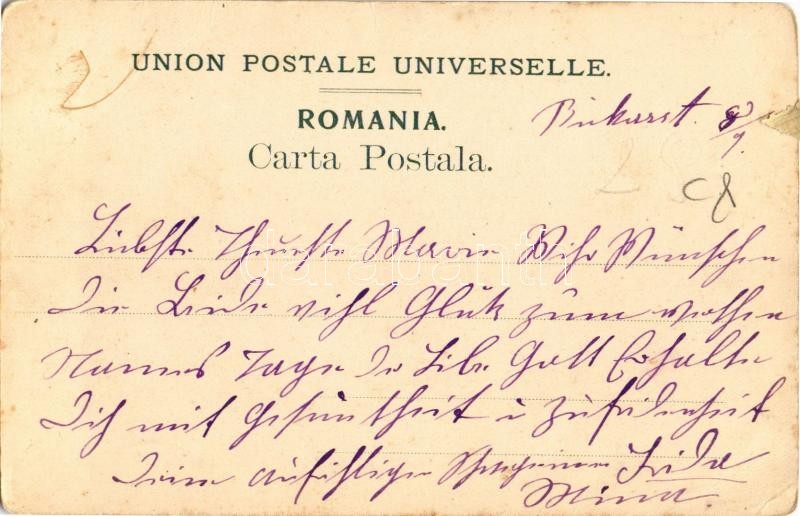 UNION POSTALE UNIVERSELLE.
ROMANIA.
Carta Postala.
Bukarest. 8/9
C8
Liebste Theurste Marie Wihr Wünschen
Dir Beide vihl Glük zum werthen
Namens Tage De Libe Gott Erhalte
Dich mit Gesuntheit u Zufridenheit
Deine aufrichtigen Frida
Mina.
darabanth